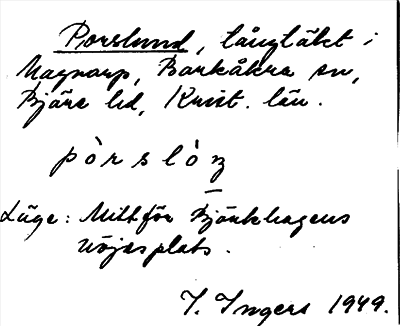 Porslund, långläkt i
Magnarp, Barkåkra sn,
Bjäre hd, Krist. län.
pòrslòṉ
Läge: Mitt för Björkhagens
nöjesplats.
I. Ingers 1949.